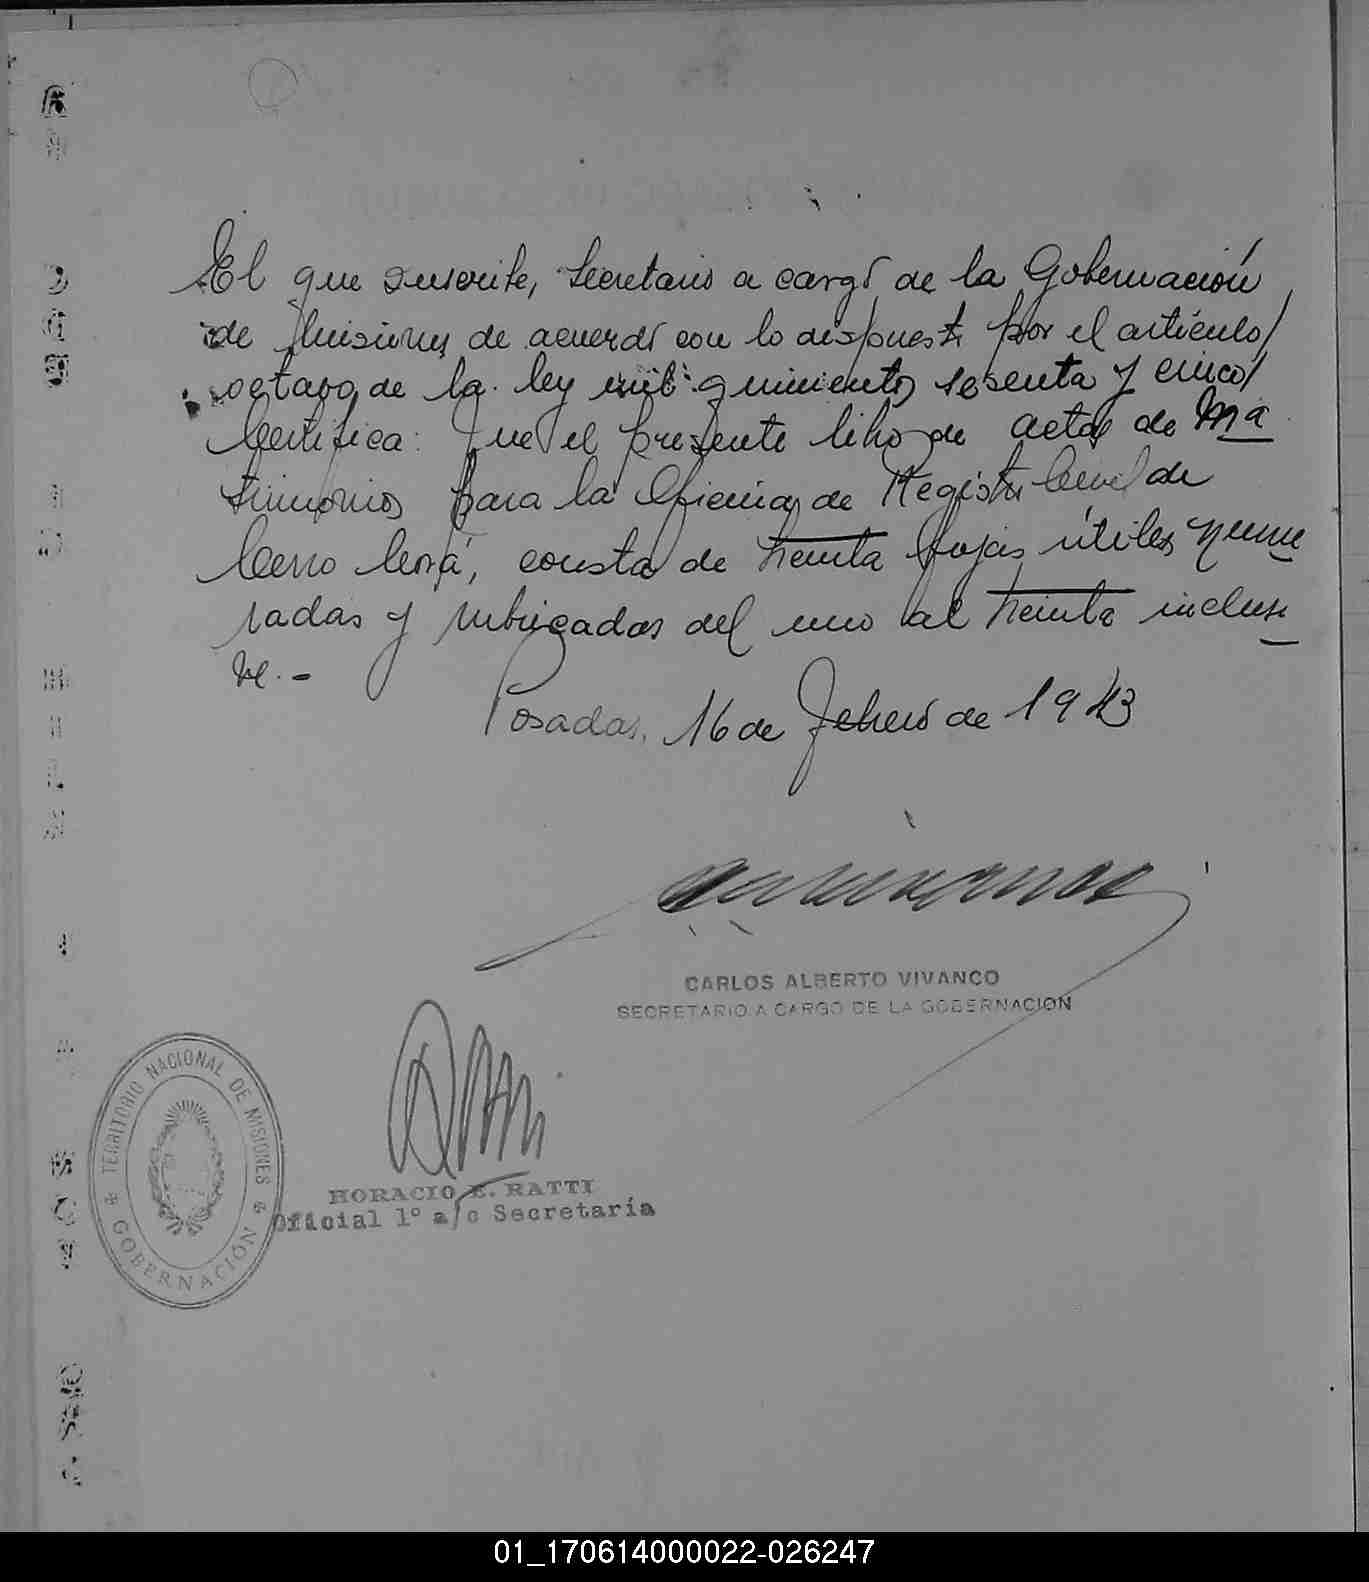 El que suscribe, Secretario a cargo de la Gobernación
de Misiones de acuerdo con lo dispuesto por el artículo/
octavo de la ley mil quinientos sesenta y cinco/
Certifica: Que el presente libro de actas de Ma
trimonios para la Oficina de Registro Civil de
Cerro Corá, consta de treinta fojas útiles nume
radas y rubricadas del uno al treinta inclusi
ve.-
Posadas, 16 de Febrero de 1943
CARLOS ALBERTO VIVANCO
SECRETARIO A CARGO DE LA GOBERNACION
TERRITORIO NACIONAL DE MISIONES
GOBERNACIÓN
HORACIO E. RATTI
Oficial 1º a/c Secretaría
01_170614000022-026247